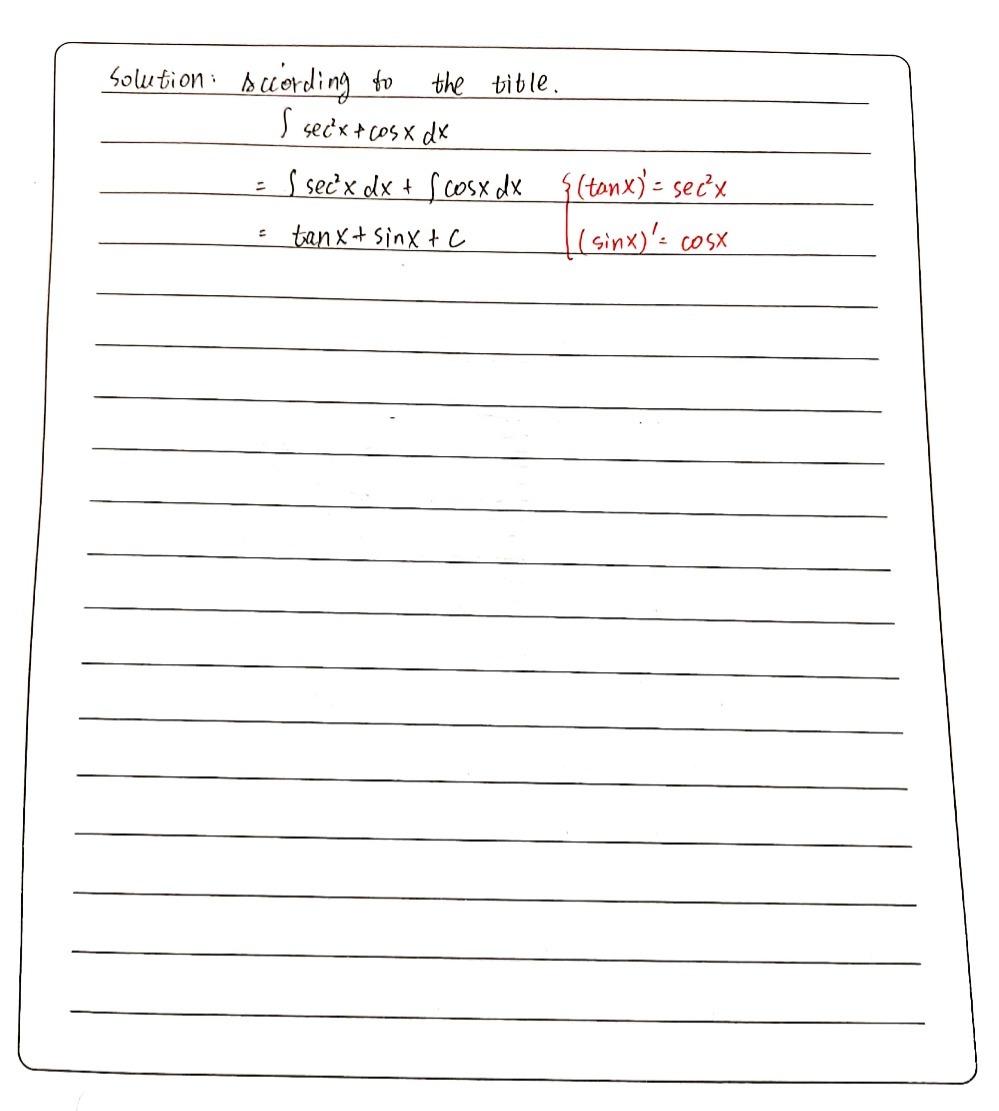 Solution: According to the title.
∫ sec²x + cosx dx
= ∫ sec²x dx + ∫ cosx dx { (tanx)' = sec²x
= tanx + sinx + C (sinx)' = cosx